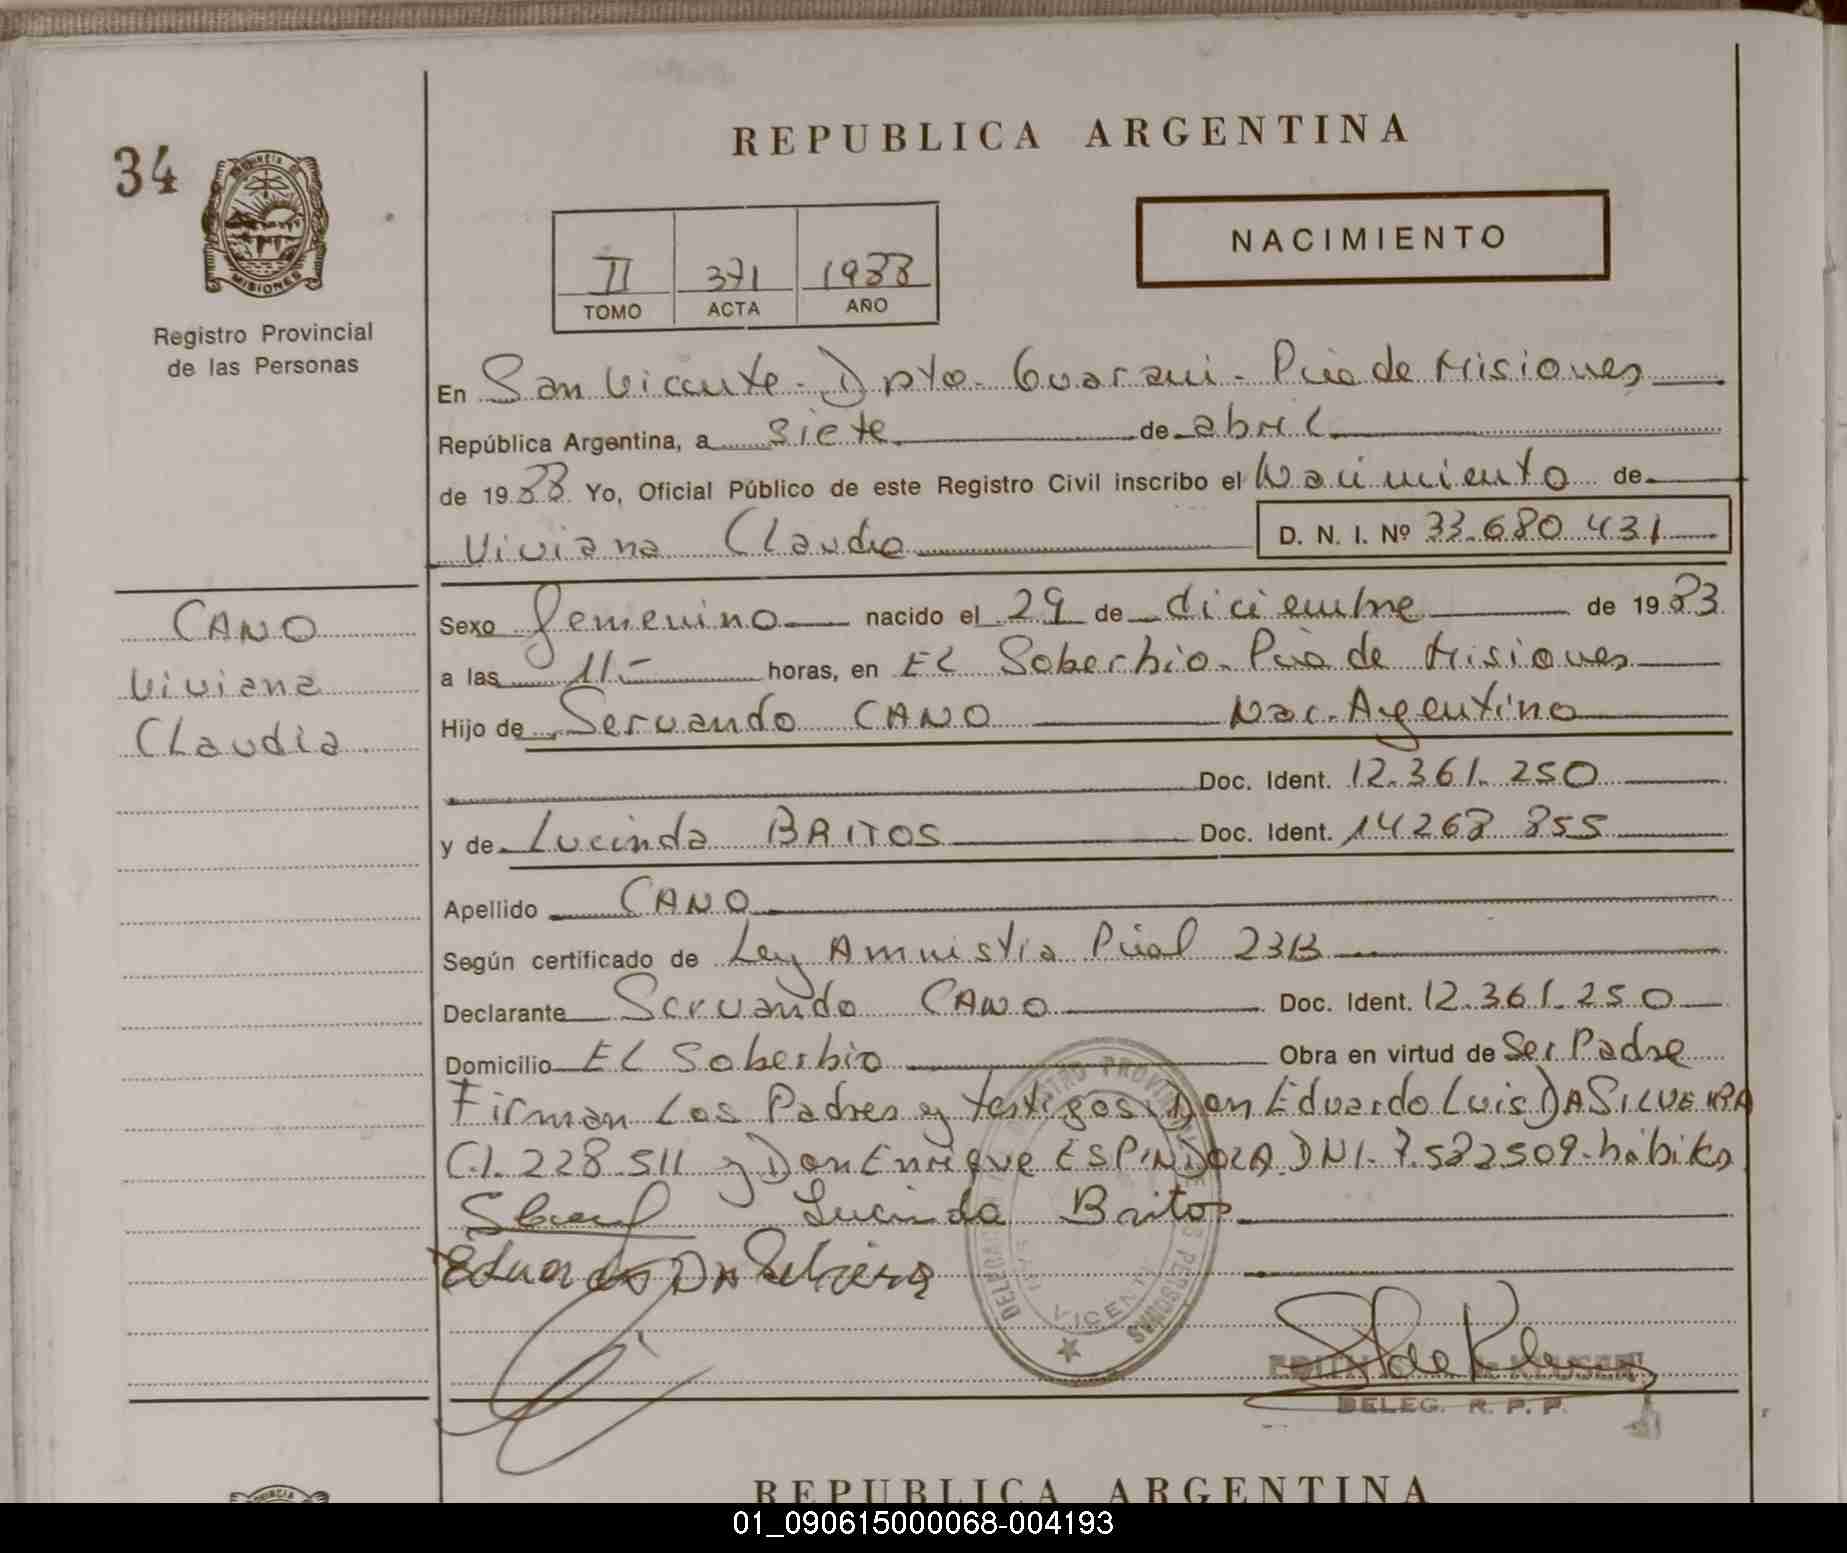 REPUBLICA ARGENTINA
34
PROVINCIA
MISIONES
Registro Provincial
de las Personas
NACIMIENTO
II 371 1988
TOMO ACTA AÑO
En San Vicente - Dpto - Guarani - Pcia de Misiones
República Argentina, a siete de abril
de 1988 Yo, Oficial Público de este Registro Civil inscribo el Nacimiento de
Viviana Claudia D. N. I. Nº 33.680.431
CANO
Viviana
Claudia
Sexo femenino nacido el 29 de diciembre de 1983
a las 11- horas, en EL Soberbio - Pcia de Misiones
Hijo de Servando CANO Nac. Argentino
Doc. Ident. 12.361.250
y de Lucinda BRITOS Doc. Ident. 14268 855
Apellido CANO
Según certificado de Ley Amnistia Pcial 2313
Declarante Servando CANO Doc. Ident. 12.361.250
Domicilio EL Soberbio Obra en virtud de Ser Padre
Firman Los Padres y testigos: Don Eduardo Luis DA SILVEIRA
C.I. 228.511 y Don Enrique ESPINDOLA DNI. 7.582509 - hábiles
Lucinda Britos
Eduardo Da Silveira
REGISTRO PROVINCIAL DE LAS PERSONAS
DELEGACION
SAN VICENTE
DELEG. R. P. P.
REPUBLICA ARGENTINA
01_090615000068-004193